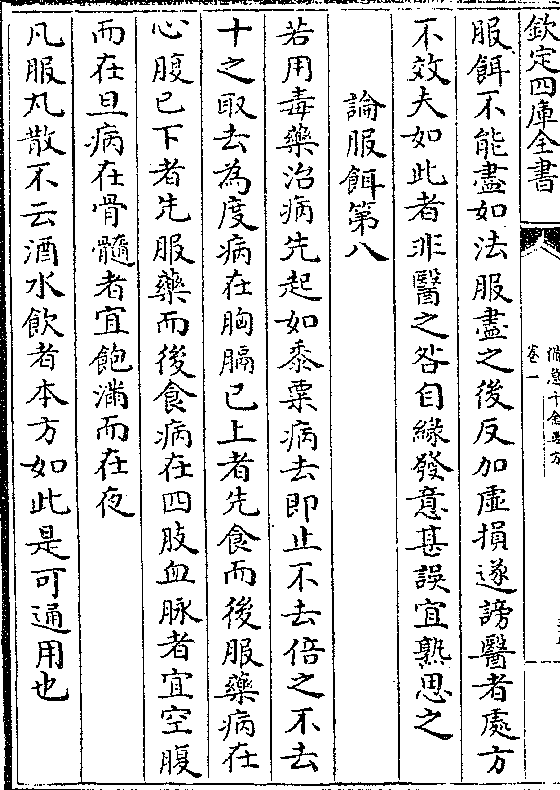 欽定四庫全書
備急千金要方
卷一
服餌不能盡如法服盡之後反加虛損遂謗醫者處方
不效夫如此者非醫之咎自緣發意甚誤宜熟思之
論服餌第八
若用毒藥治病先起如黍粟病去即止不去倍之不去
十之取去為度病在胸膈已上者先食而後服藥病在
心腹已下者先服藥而後食病在四肢血脉者宜空腹
而在旦病在骨髓者宜飽滿而在夜
凡服丸散不云酒水飲者本方如此是可通用也